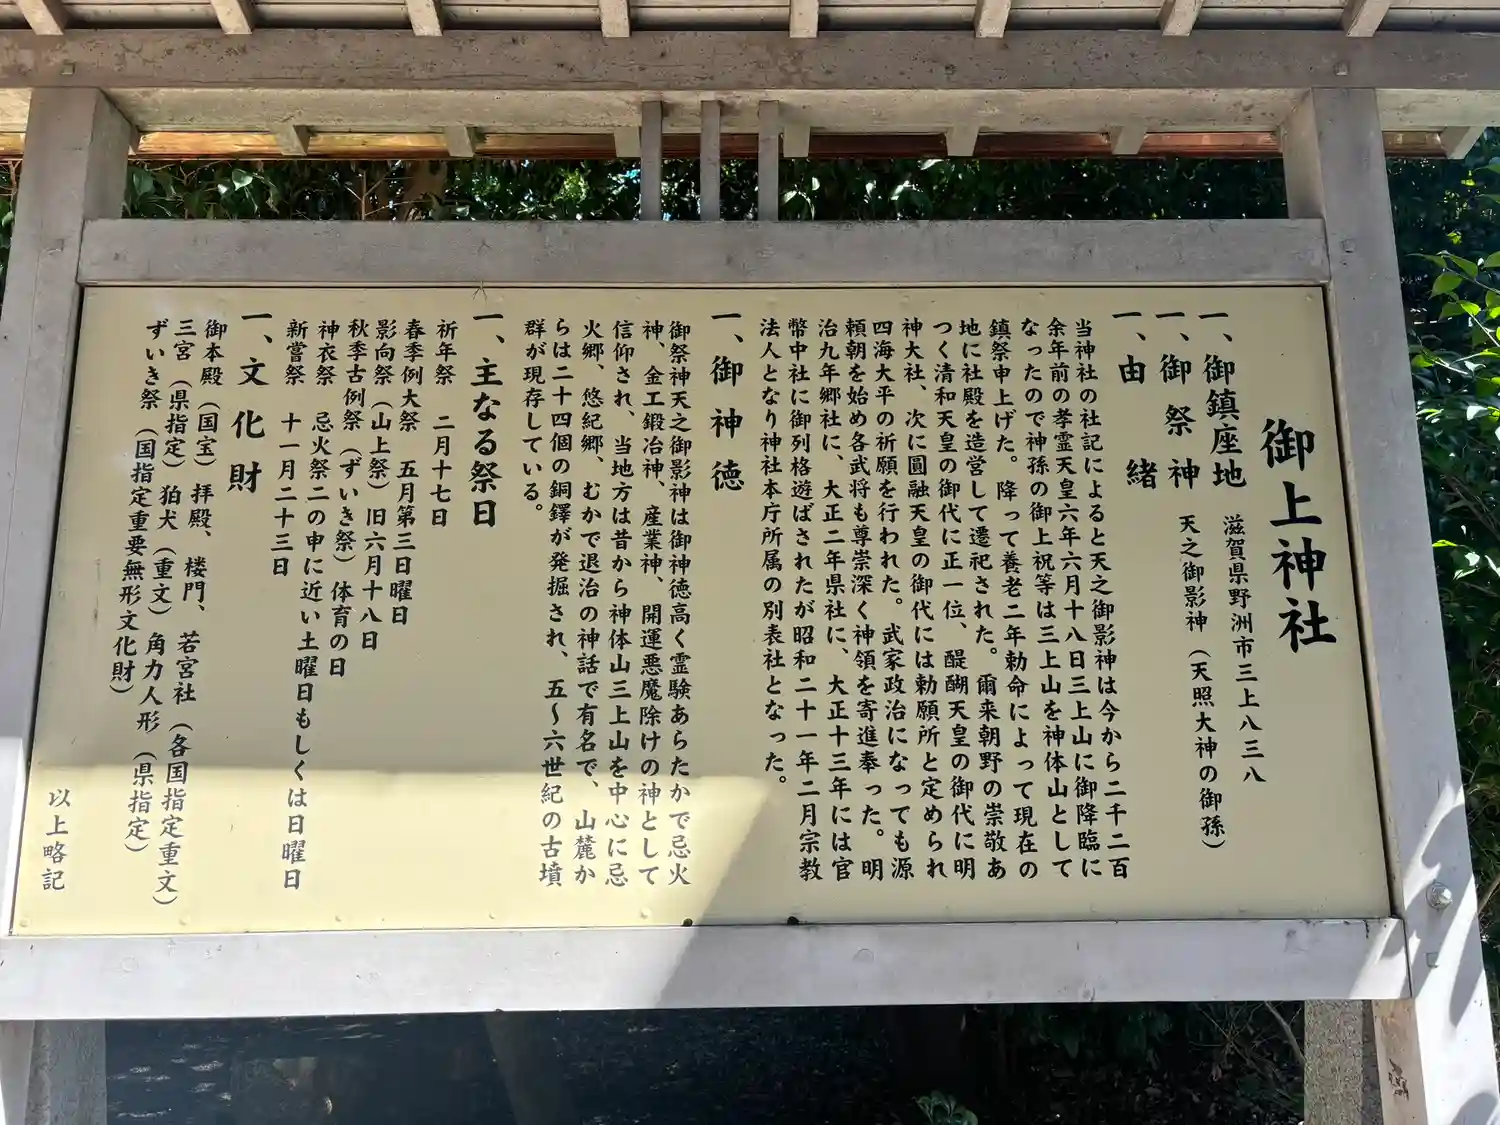 御上神社
一、御鎮座地　滋賀県野洲市三上八三八
一、御祭神　天之御影神（天照大神の御孫）
一、由緒
当神社の社記によると天之御影神は今から二千二百
余年前の孝霊天皇六年六月十八日三上山に御降臨に
なったので神孫の御上祝等は三上山を神体山として
鎮祭申上げた。降って養老二年勅命によって現在の
地に社殿を造営して遷祀された。爾来朝野の崇敬あ
つく清和天皇の御代に正一位、醍醐天皇の御代に明
神大社、次に圓融天皇の御代には勅願所と定められ
四海大平の祈願を行われた。武家政治になっても源
頼朝を始め各武将も尊崇深く神領を寄進奉った。明
治九年郷社に、大正二年県社に、大正十三年には官
幣中社に御列格遊ばされたが昭和二十一年二月宗教
法人となり神社本庁所属の別表社となった。
一、御神徳
御祭神天之御影神は御神徳高く霊験あらたかで忌火
神、金工鍛冶神、産業神、開運悪魔除けの神として
信仰され、当地方は昔から神体山三上山を中心に忌
火郷、悠紀郷、むかで退治の神話で有名で、山麓か
らは二十四個の銅鐸が発掘され、五～六世紀の古墳
群が現存している。
一、主なる祭日
祈年祭　二月十七日
春季例大祭　五月第三日曜日
影向祭（山上祭）旧六月十八日
秋季古例祭（ずいき祭）体育の日
神衣祭　忌火祭二の申に近い土曜日もしくは日曜日
新嘗祭　十一月二十三日
一、文化財
御本殿（国宝）拝殿、楼門、若宮社（各国指定重文）
三宮（県指定）狛犬（重文）角力人形（県指定）
ずいき祭（国指定重要無形文化財）
以上略記